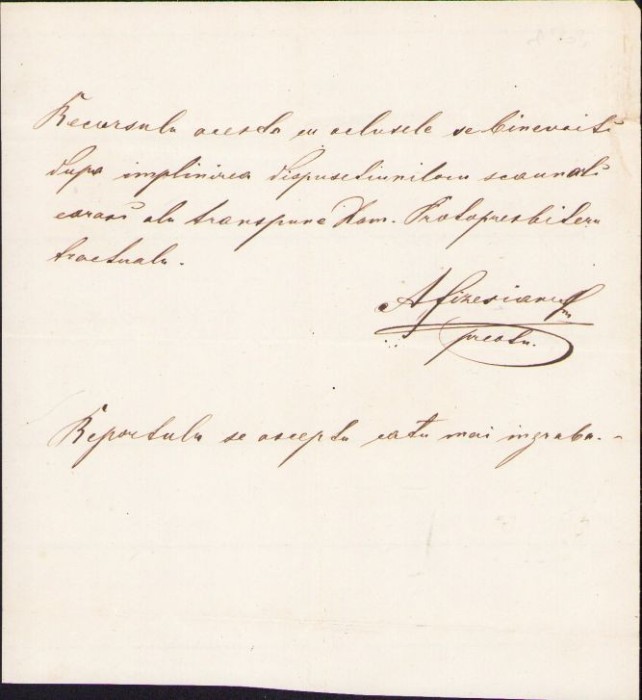 Recursulu acesta cu aclusele se binevoiti
dupa implinirea dispusetiunilorn scaunali
earasi alu transpune Dom. Protopresbiteru
tractualu.
A Fizesianu
preotu.
Reportulu se ascepta catu mai in graba. -